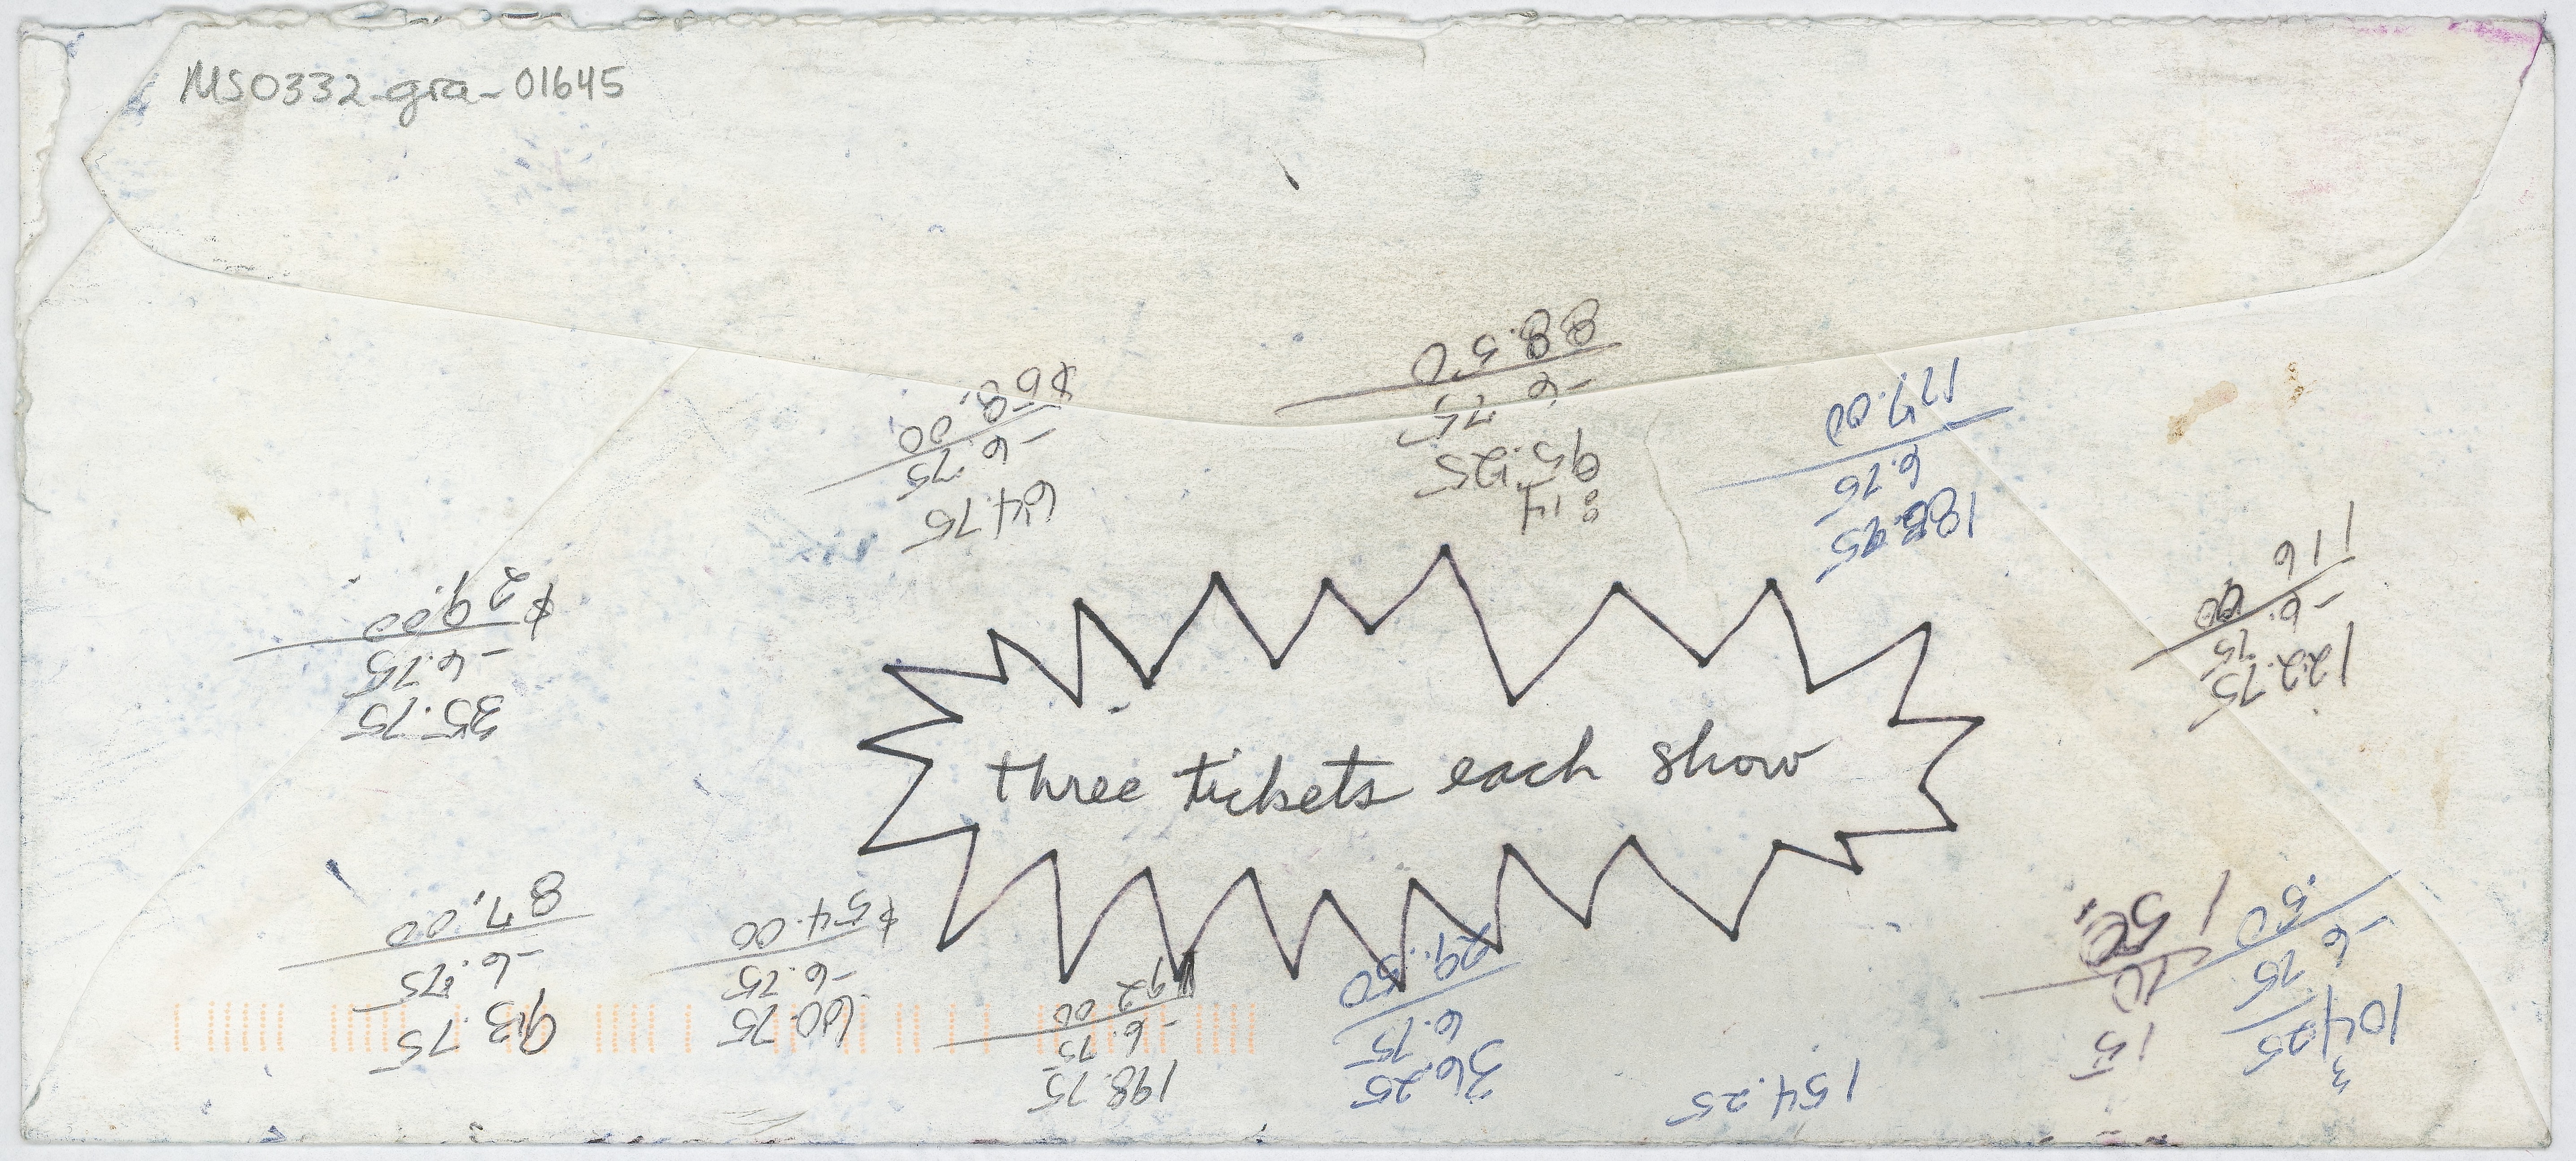 MS0332-gra-01645
three tickets each show
104.25
-6.75
.50
15
10
150
154.25
36.25
6.75
29.50
198.75
-6.75
192.00
60.75
-6.75
$54.00
93.75
-6.75
87.00
122.75
-6.75
116
35.75
-6.75
$29.00
8 14
95.25
-6 75
88.50
6.75
177.00
64.75
-6.75
$58.00